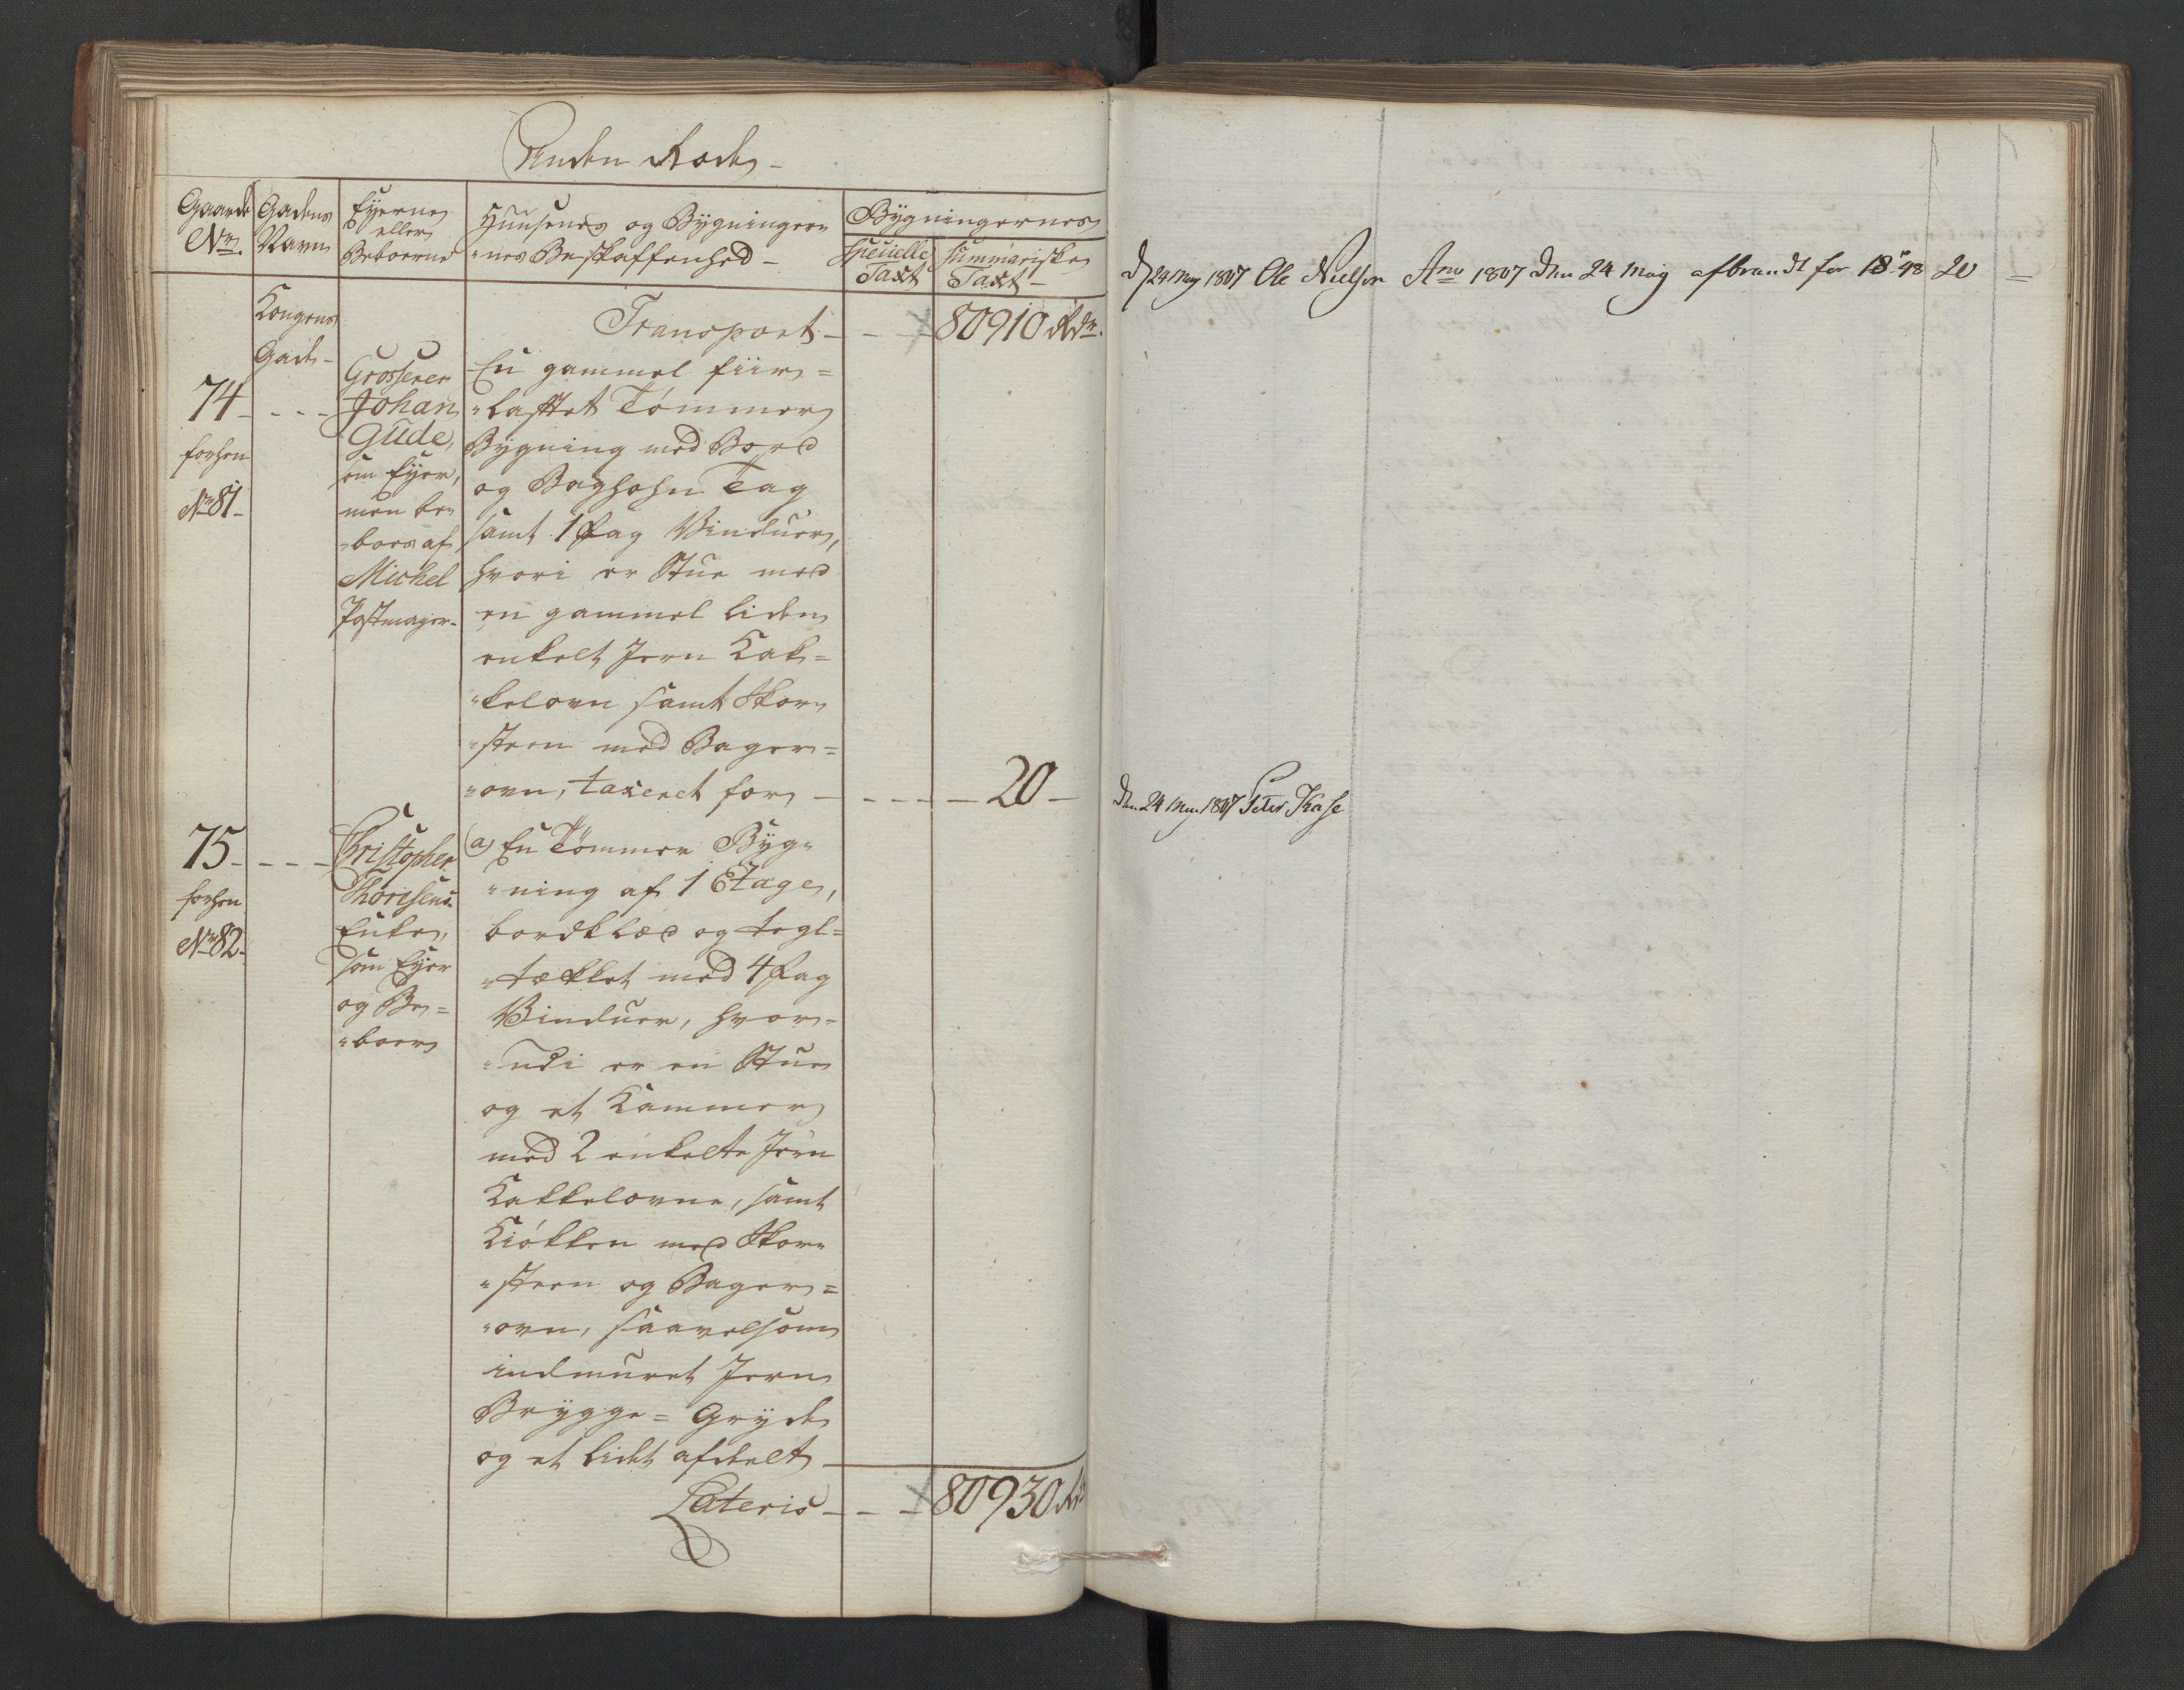 Anden Rode
Gaarde Nr.
Gadens Navn
Eyerne eller Beboerne
Huusenes og Bygninger-
"nes Beskaffenhed
Bygningernes
Specielle Taxt
Summariske Taxt
Kongens
Gade
Transport 80910 Rdr.
74
forhen
Nr. 81
Grosserer
Johan
Gude,
som Eyer,
men be-
"boes af
Michel
Postmager
En gammel fiir=
"laftet Tømmer
Bygning med Bord
og Baghohn Tag
samt 1 Fag Vinduer,
hvori er Stue med
en gammel liden
enkelt Jern Kak=
"kelovn samt Skor-
"steen med Bager=
"ovn, taxeret for 20
75
forhen
Nr. 82
Christopher
Thoresens
Enke,
som Eyer
og Be=
"boer
a) En Tømmer Byg-
"ning af 1 Etage,
bordklæd og tegl=
"tækket med 4 Fag
Vinduer, hvor-
"udi er en Stue
og et Kammer
med 2 enkelte Jern
Kakkelovne, samt
Kiökken med Skor-
"steen og Bager=
"ovn, saavelsom
indmuret Jern
Brygge=Gryde
og et lidet afdeelt
Lateris 80930 Rdr
d 24 May 1807 Ole Nielsen Ano 1807 den 24 May afbrandt for 18 r 48 20 =
den 24 May 1807 Peter Kase